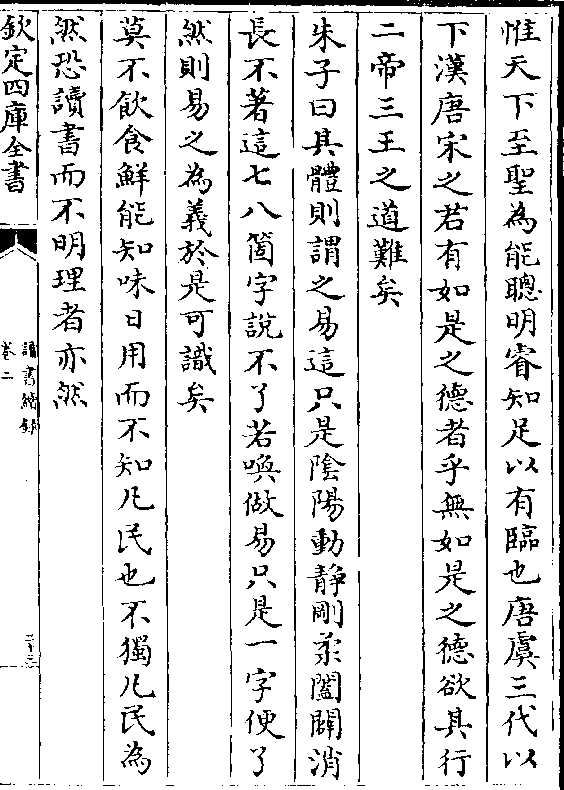 惟天下至聖為能聰明睿知足以有臨也唐虞三代以
下漢唐宋之君有如是之德者乎無如是之德欲其行
二帝三王之道難矣
朱子曰其體則謂之易這只是陰陽動静剛柔闔闢消
長不著這七八箇字說不了若喚做易只是一字便了
然則易之為義於是可識矣
莫不飲食鮮能知味日用而不知凡民也不獨凡民為
然恐讀書而不明理者亦然
欽定四庫全書
讀書續録
卷二
二十三